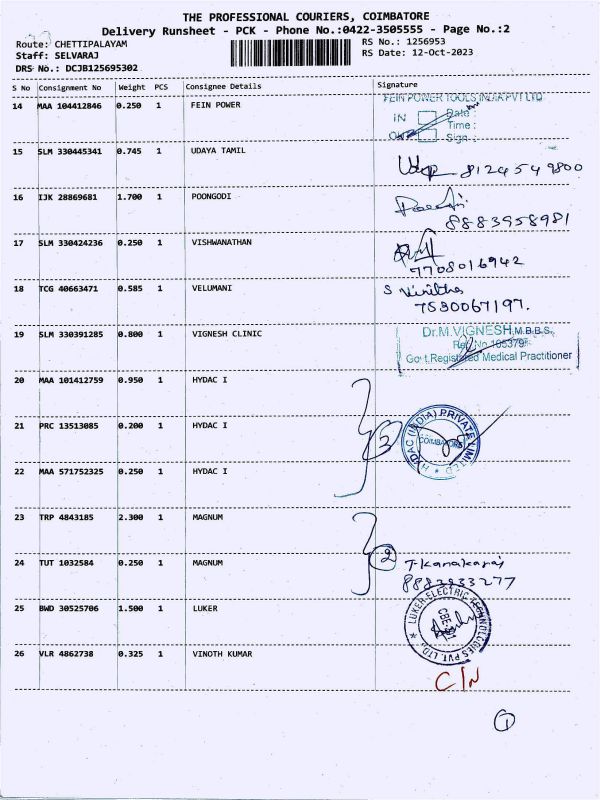 THE PROFESSIONAL COURIERS, COIMBATORE
Delivery Runsheet - PCK - Phone No.:0422-3505555 - Page No.:2
Route: CHETTIPALAYAM RS No.: 1256953
Staff: SELVARAJ RS Date: 12-Oct-2023
DRS No.: DCJB125695302
S No Consignment No Weight PCS Consignee Details Signature
14 MAA 104412846 0.250 1 FEIN POWER FEIN POWER TOOLS INDIA PVT LTD
IN Date :
Time :
OUT Sign :
15 SLM 330445341 0.745 1 UDAYA TAMIL
8124549800
16 IJK 28869681 1.700 1 POONGODI
8883958981
17 SLM 330424236 0.250 1 VISHWANATHAN
7708016942
18 TCG 40663471 0.585 1 VELUMANI S Vinitha
7530067197.
19 SLM 330391285 0.800 1 VIGNESH CLINIC Dr.M.VIGNESH,M.B.B.S.,
Reg.No.105379
Govt.Registered Medical Practitioner
20 MAA 101412759 0.950 1 HYDAC I
21 PRC 13513085 0.200 1 HYDAC I 3 HYDAC (INDIA) PRIVATE LIMITED
COIMBATORE
22 MAA 571752325 0.250 1 HYDAC I
23 TRP 4843185 2.300 1 MAGNUM
24 TUT 1032584 0.250 1 MAGNUM 2 T-Kanakaraj
8883933277
25 BWD 30525706 1.500 1 LUKER LUKER ELECTRIC TECHNOLOGIES PVT. LTD.
26 VLR 4862738 0.325 1 VINOTH KUMAR
C/N
1